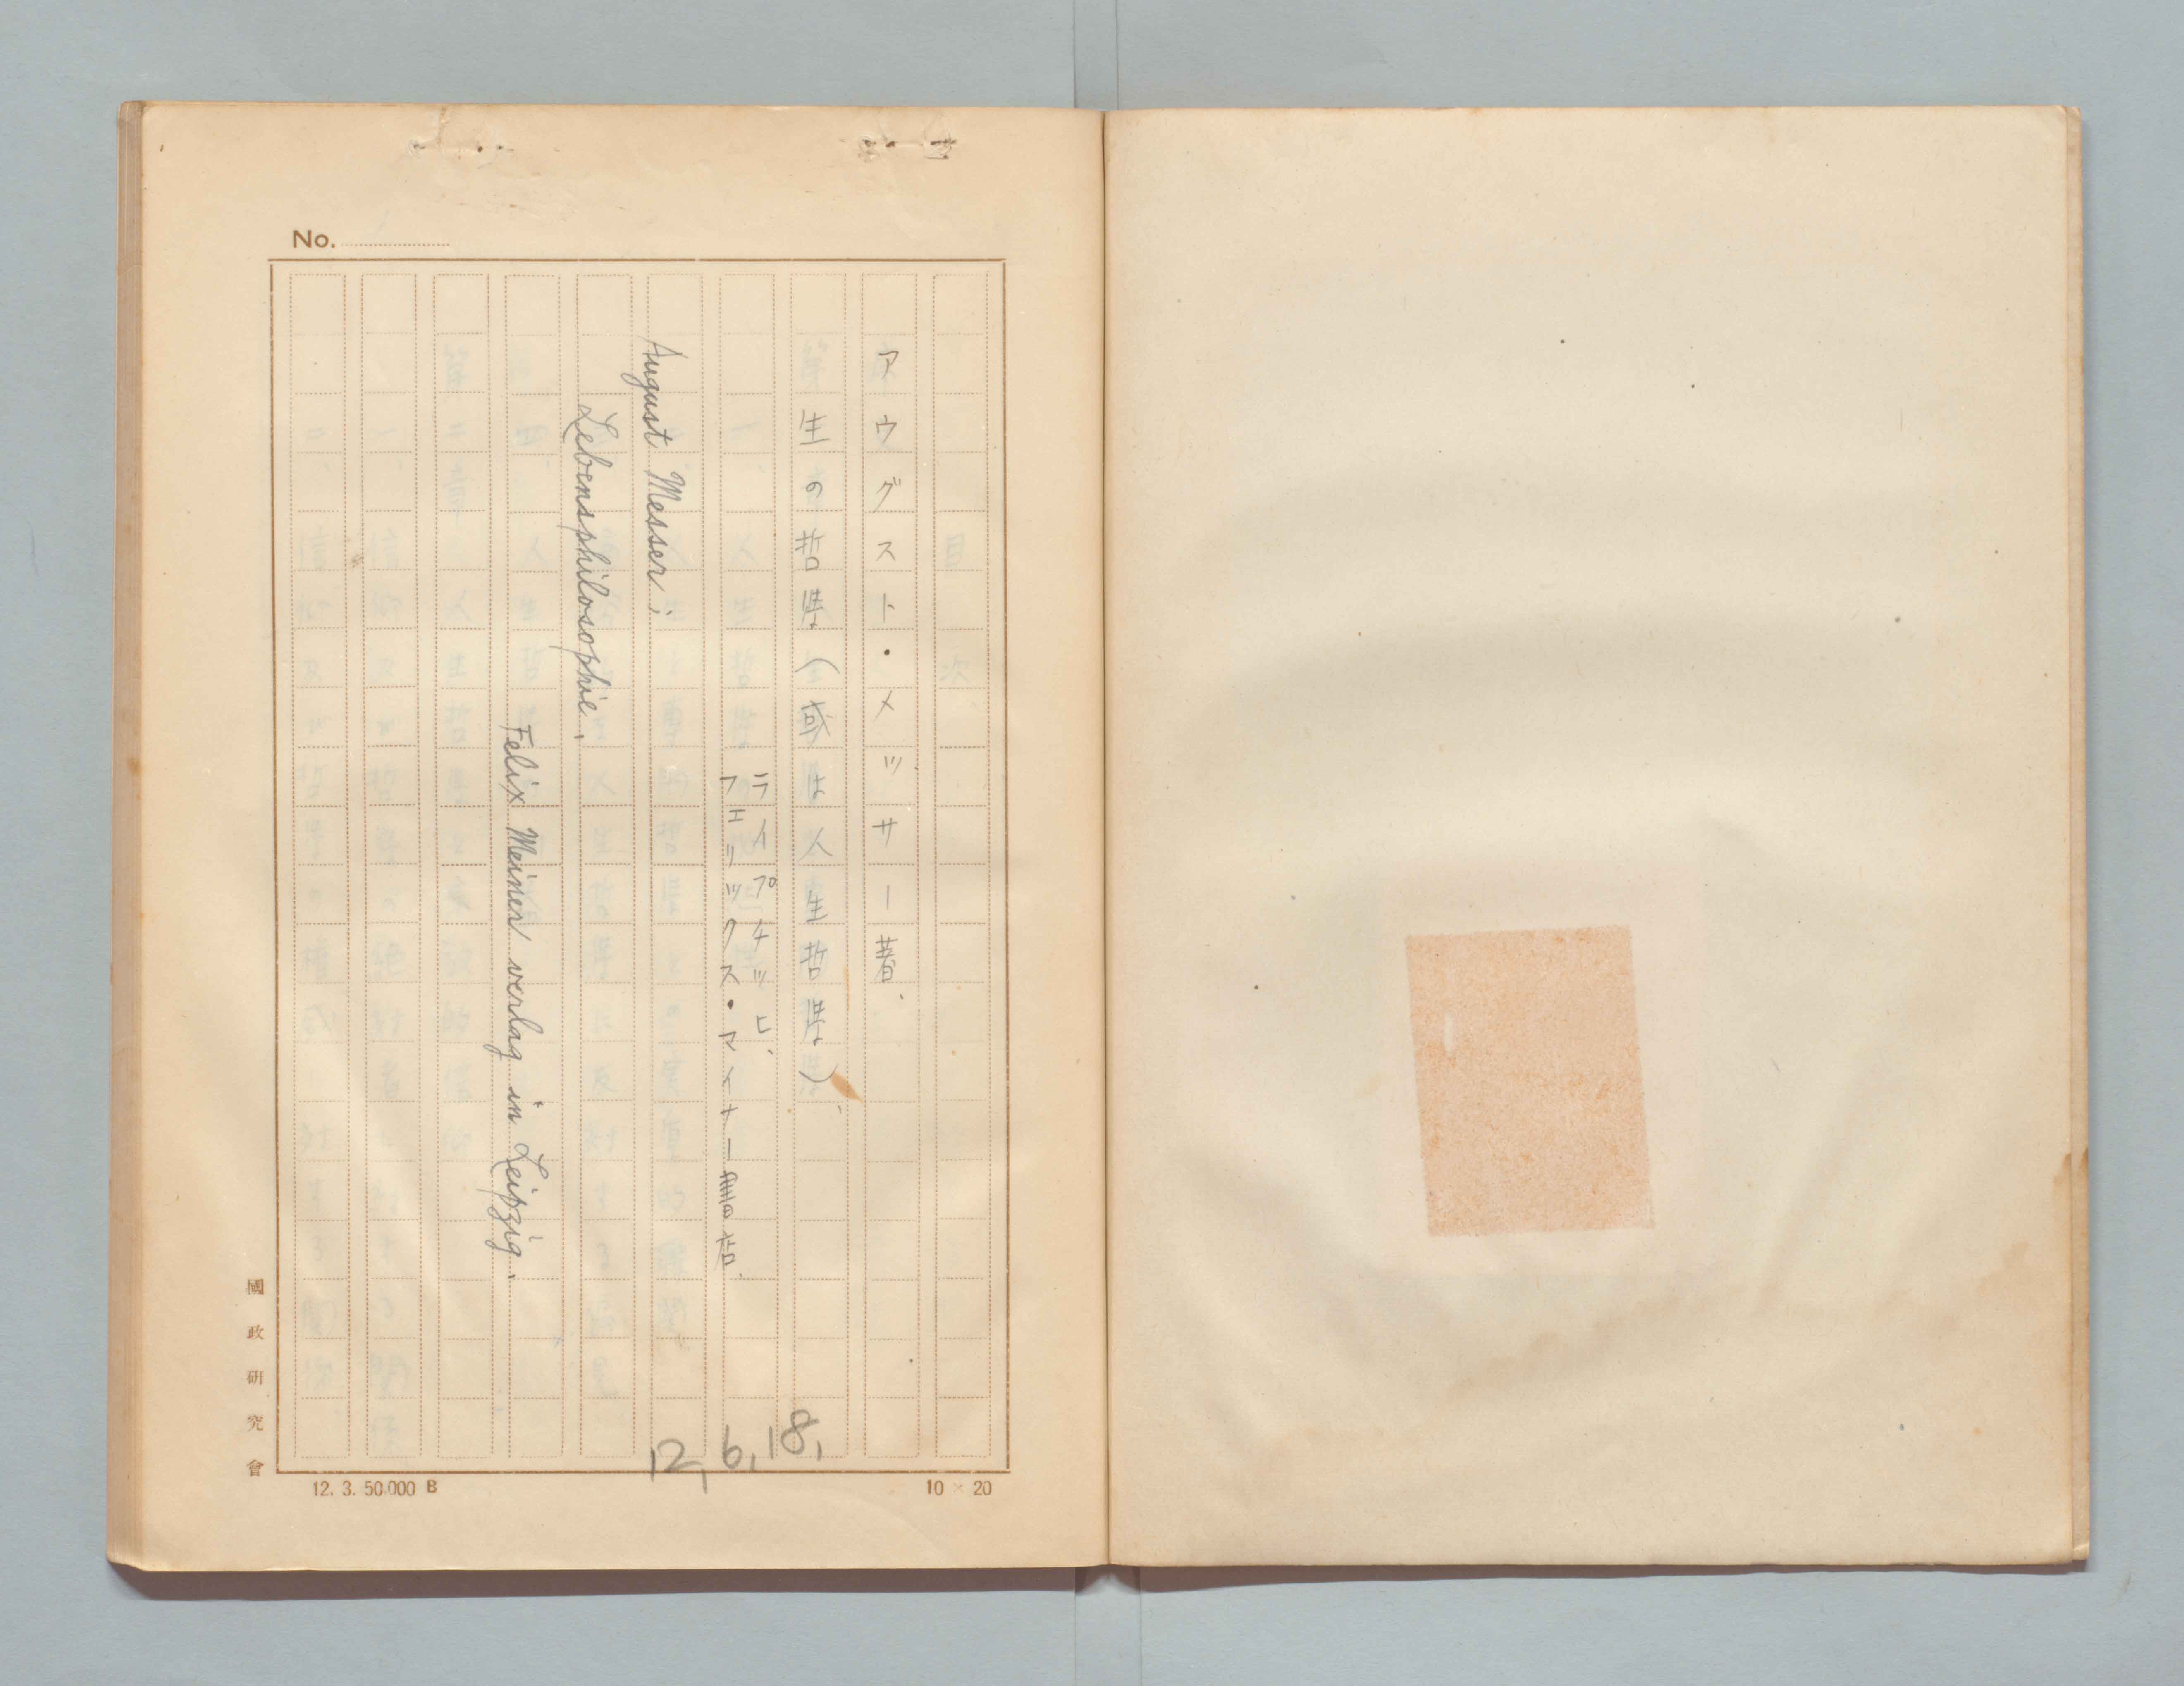 No.
アウグスト・メッサー著、
生の哲学（或は人生哲学）、
ライプチッヒ、
フェリックス・マイナー書店、
August Messer;
Lebensphilosophie,
Felix Meiner verlag in Leipzig.
12, 6, 18,
國政研究會
12. 3. 50.000 B
10 × 20